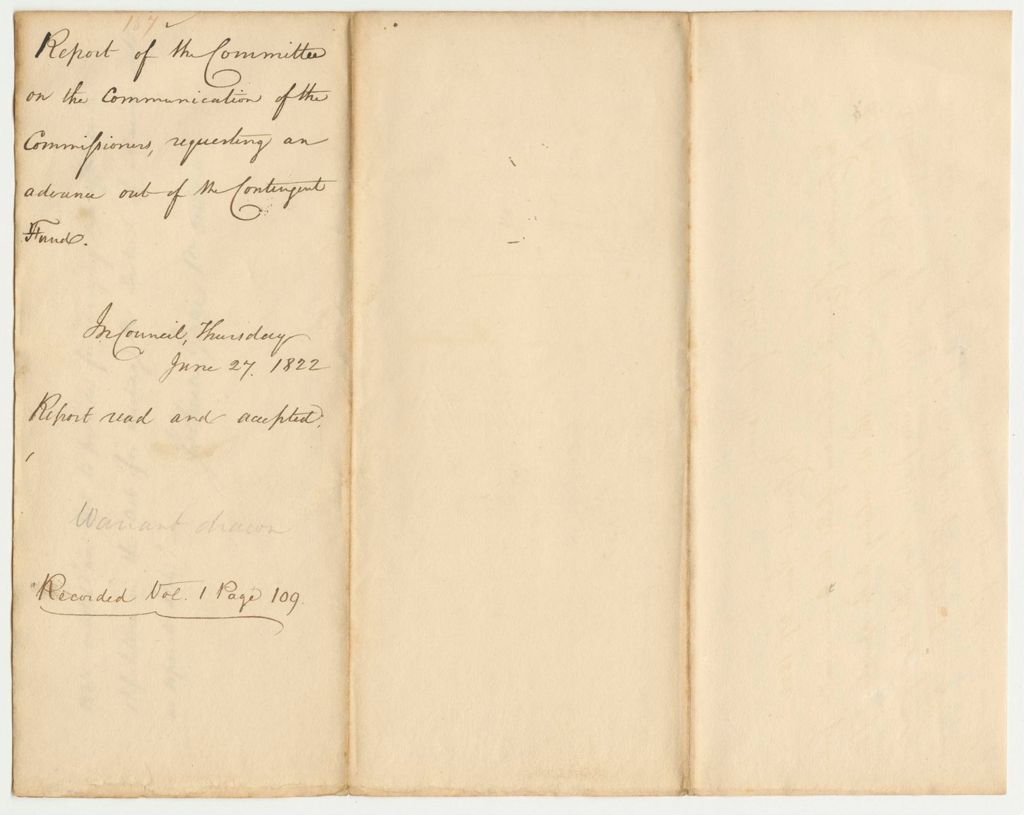 187
Report of the Committee
on the Communication of the
Commissioners, requesting an
advance out of the Contingent
Fund.
In Council, Thursday
June 27. 1822
Report read and accepted.
Warrant drawn
Recorded Vol. 1 Page 109.